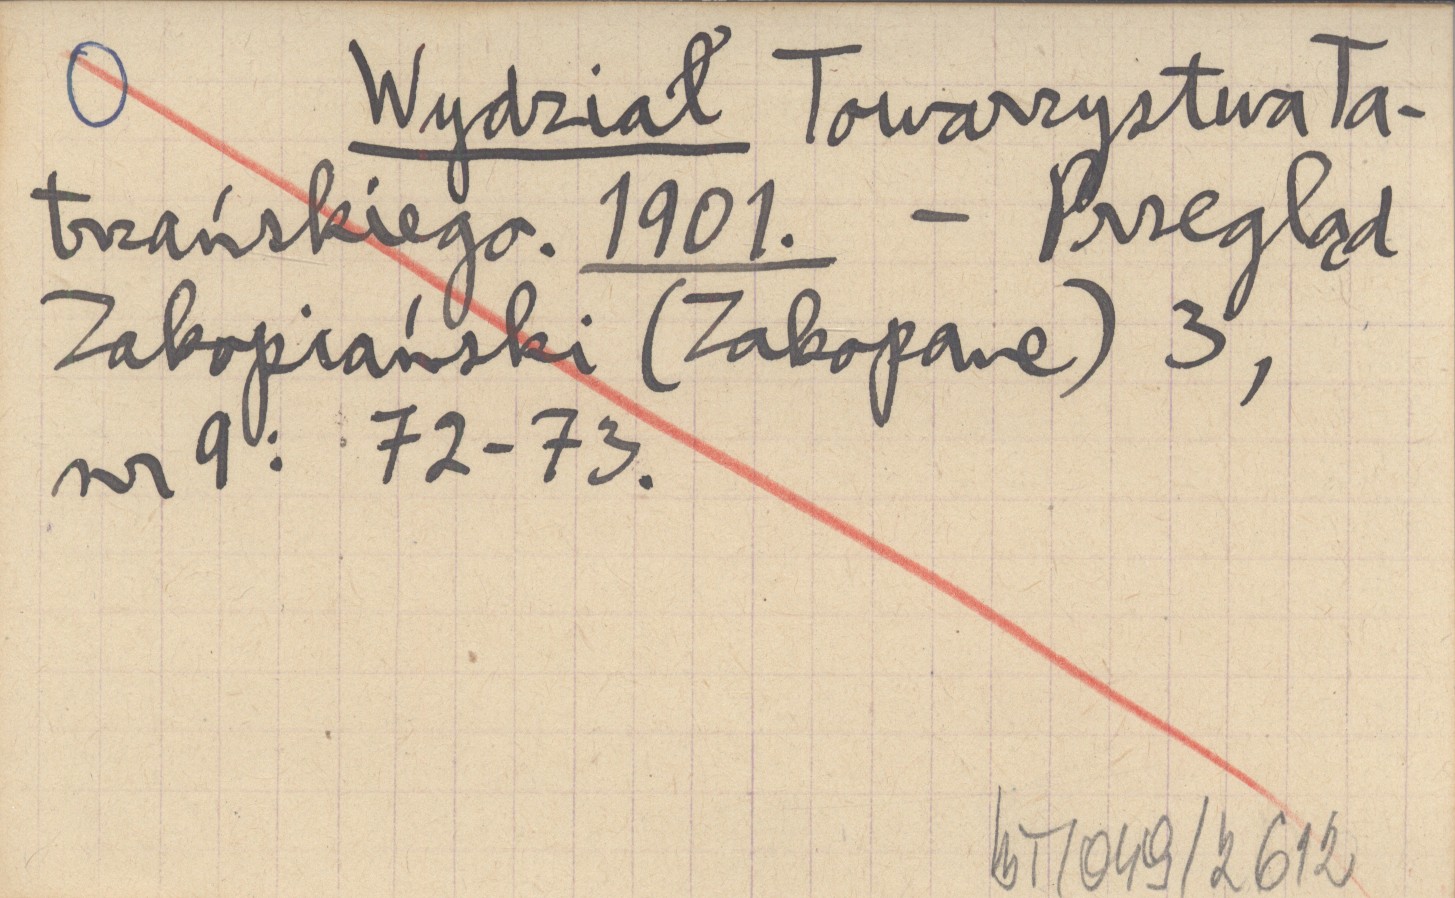 Wydział Towarzystwa Ta-
trzańskiego. 1901. – Przegląd
Zakopiański (Zakopane) 3,
nr 9: 72-73.
/049/2612